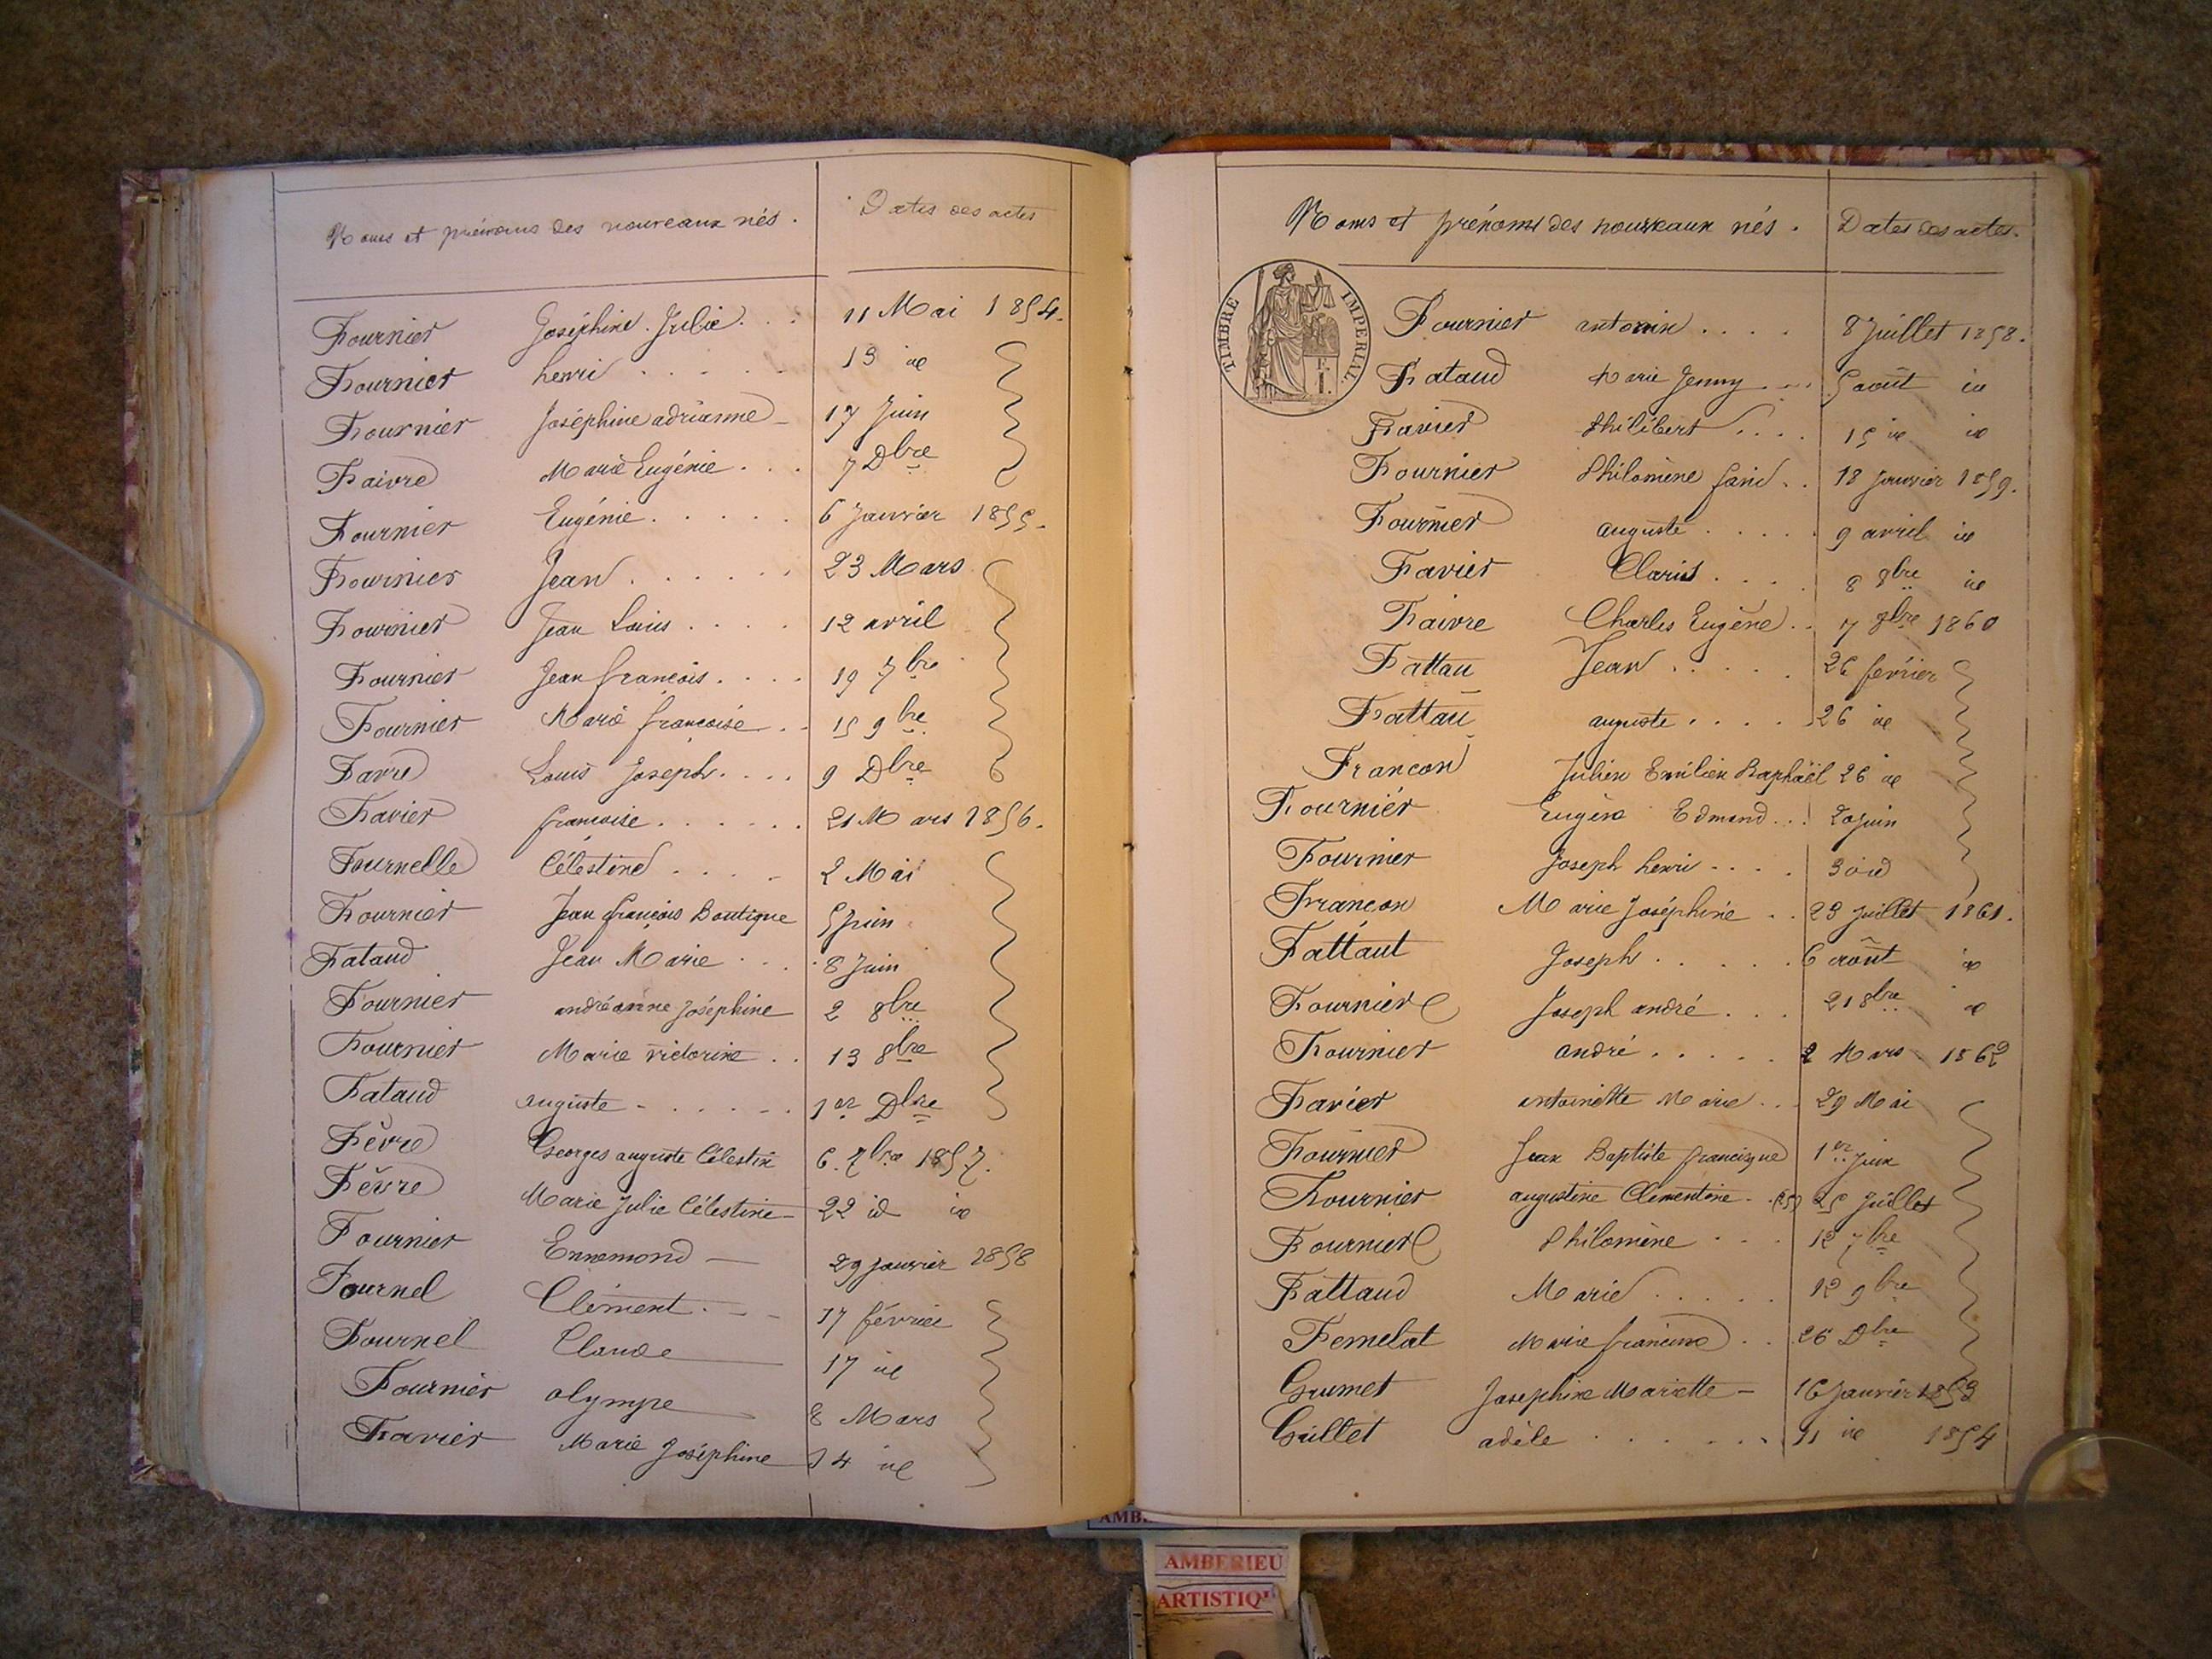 Noms et prénoms des nouveaux nés. Dates des actes
Fournier Joséphine Julie... 11 Mai 1854.
Fournier henri 13 id
Fournier Joséphine adrianne 17 Juin
Faivre Marie Eugénie... 7 Dbre
Fournier Eugénie..... 6 Janvier 1855.
Fournier Jean...... 23 Mars
Fournier Jean Louis.... 12 avril
Fournier Jean françois.... 19 7bre
Fournier Marie françoise.. 15 9bre
Favre Louis Joseph.... 9 Dbre
Favier françoise...... 21 Mars 1856.
Fournelle Célestine.... 2 Mai
Fournier Jean françois Boutique 5 Juin
Fataud Jean Marie... 8 Juin
Fournier andréanne Joséphine 2 8bre
Fournier Marie victorine.. 13 8bre
Fataud auguste...... 1er Dbre
Fèvre Georges auguste Célestin 6. 7bre 1857.
Fèvre Marie Julie Célestine 22 id id
Fournier Ennemond 29 Janvier 1858
Fournel Clément. 17 février
Fournel Claude 17 id
Fournier olympe 8 Mars
Favier Marie Joséphine 14 id
Noms et prénoms des nouveaux nés. Dates des actes.
TIMBRE IMPERIAL.
Fournier antonin.... 8 Juillet 1858.
Fataud Marie Jenny... 5 août id
Favier Philibert.... 15 id id
Fournier Philomène fanie.. 18 Janvier 1859.
Fournier auguste..... 9 avril id
Favier Claris.... 8 8bre id
Faivre Charles Eugène.. 7 9bre 1860
Fattau Jean..... 26 février
Fattau auguste.... 26 id
Francon Julien Emilien Raphaël 26 id
Fournier Eugène Edmond... 20 juin
Fournier Joseph henri.... 30 id
Françon Marie Joséphine.. 23 Juillet 1861.
Fattaut Joseph..... 6 août id
Fournier Joseph andré... 21 8bre id
Fournier andré..... 2 Mars 1862
Favier antoinette Marie... 29 Mai
Fournier Jean Baptiste francisque 1er Juin
Fournier augustine Clémentine.. (25) 25 Juillet
Fournier Philomène... 12 7bre
Fattaud Marie..... 12 9bre
Femelat Marie francine.. 26 Dbre
Grumet Josephine Mariette 16 Janvier 1853
Guillet adèle....... 11 id 1854
AMBERIEU
ARTISTIQU